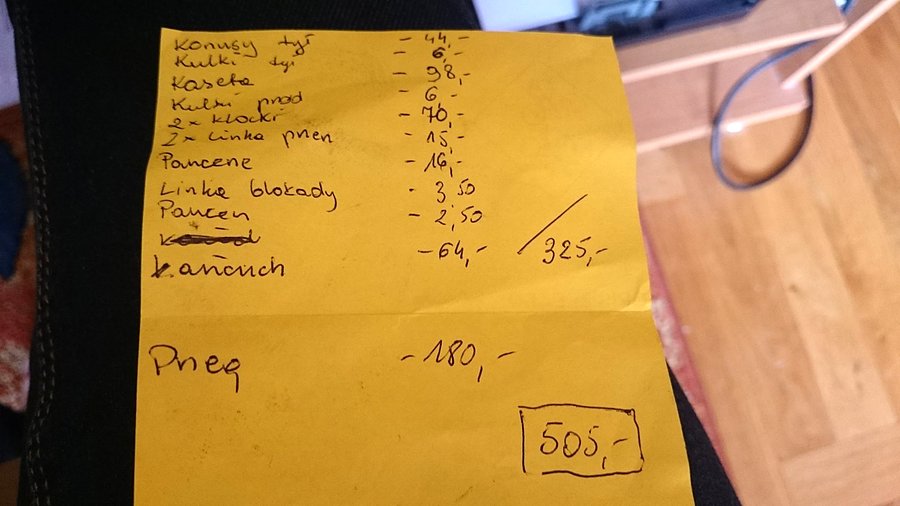 Konusy tył - 44,-
Kulki tył 6,-
Kaseta - 98,-
Kulki przód - 6,-
2x klocki - 70,-
2x Linka przerz - 15,-
Pancerze - 16,-
Linka blokady - 3,50
Pancerz - 2,50
Łańcuch - 64,- / 325,-
Praca - 180,-
505,-